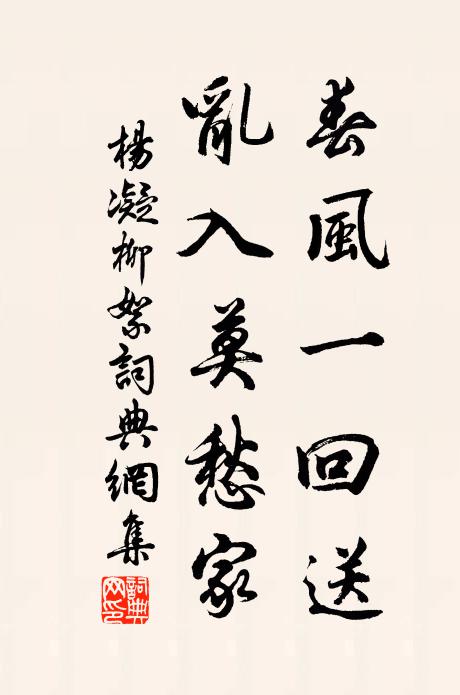 春風一回送
亂入莫愁家
楊凝柳絮詞典網集
詞典網印